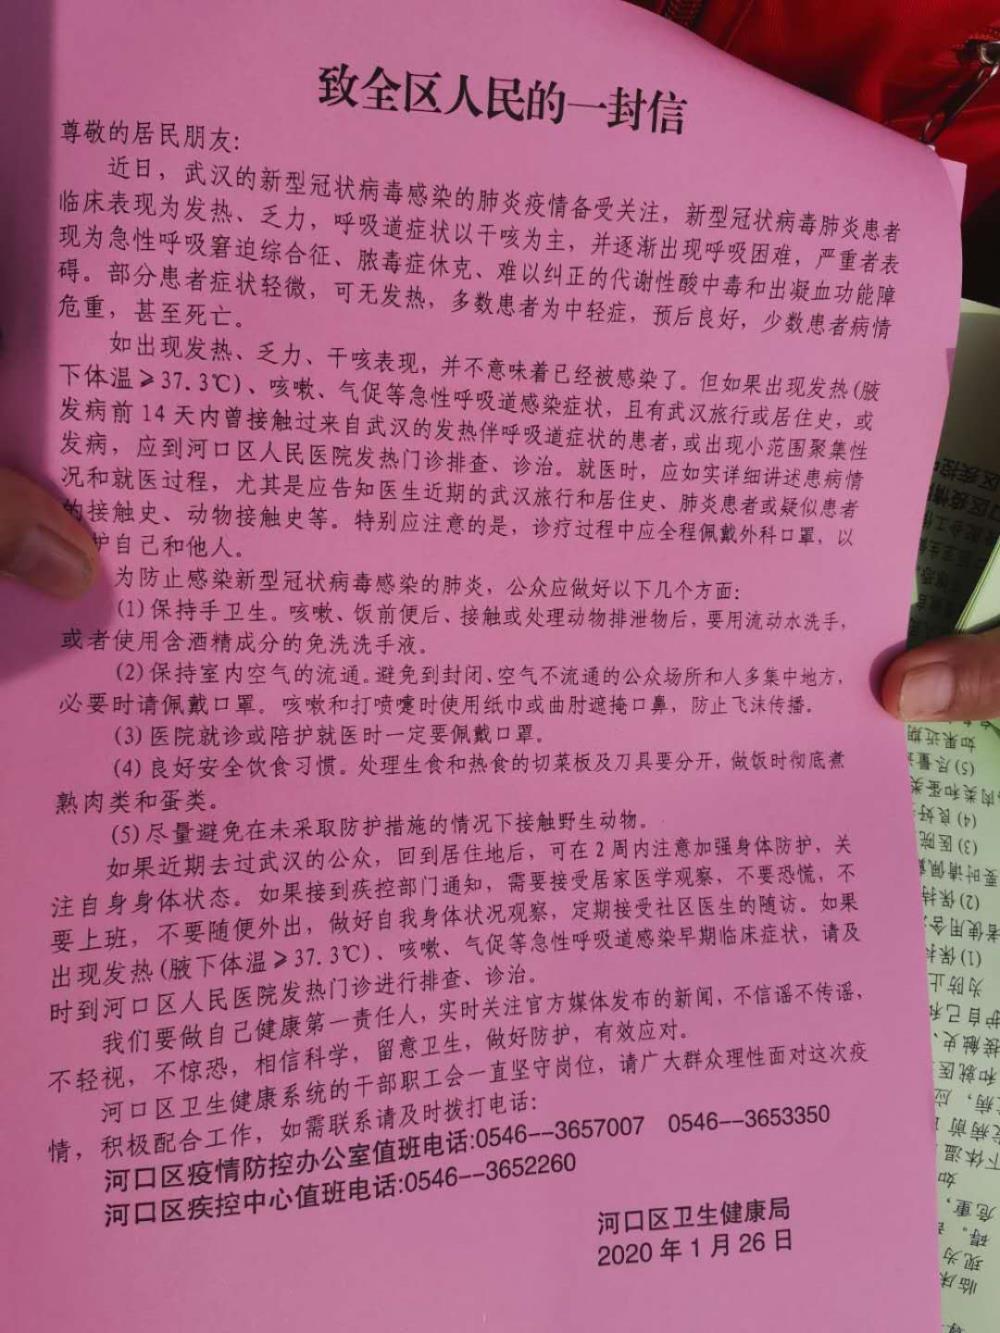 致全区人民的一封信
尊敬的居民朋友：
近日，武汉的新型冠状病毒感染的肺炎疫情备受关注，新型冠状病毒肺炎患者
临床表现为发热、乏力，呼吸道症状以干咳为主，并逐渐出现呼吸困难，严重者表
现为急性呼吸窘迫综合征、脓毒症休克、难以纠正的代谢性酸中毒和出凝血功能障
碍。部分患者症状轻微，可无发热，多数患者为中轻症，预后良好，少数患者病情
危重，甚至死亡。
如出现发热、乏力、干咳表现，并不意味着已经被感染了。但如果出现发热(腋
下体温≥37.3℃)、咳嗽、气促等急性呼吸道感染症状，且有武汉旅行或居住史，或
发病前14天内曾接触过来自武汉的发热伴呼吸道症状的患者，或出现小范围聚集性
发病，应到河口区人民医院发热门诊排查、诊治。就医时，应如实详细讲述患病情
况和就医过程，尤其是应告知医生近期的武汉旅行和居住史、肺炎患者或疑似患者
的接触史、动物接触史等。特别应注意的是，诊疗过程中应全程佩戴外科口罩，以
护自己和他人。
为防止感染新型冠状病毒感染的肺炎，公众应做好以下几个方面：
(1)保持手卫生。咳嗽、饭前便后、接触或处理动物排泄物后，要用流动水洗手，
或者使用含酒精成分的免洗洗手液。
(2)保持室内空气的流通。避免到封闭、空气不流通的公众场所和人多集中地方，
必要时请佩戴口罩。咳嗽和打喷嚏时使用纸巾或曲肘遮掩口鼻，防止飞沫传播。
(3)医院就诊或陪护就医时一定要佩戴口罩。
(4)良好安全饮食习惯。处理生食和热食的切菜板及刀具要分开，做饭时彻底煮
熟肉类和蛋类。
(5)尽量避免在未采取防护措施的情况下接触野生动物。
如果近期去过武汉的公众，回到居住地后，可在2周内注意加强身体防护，关
注自身身体状态。如果接到疾控部门通知，需要接受居家医学观察，不要恐慌，不
要上班，不要随便外出，做好自我身体状况观察，定期接受社区医生的随访。如果
出现发热(腋下体温≥37.3℃)、咳嗽、气促等急性呼吸道感染早期临床症状，请及
时到河口区人民医院发热门诊进行排查、诊治。
我们要做自己健康第一责任人，实时关注官方媒体发布的新闻，不信谣不传谣，
不轻视，不惊恐，相信科学，留意卫生，做好防护，有效应对。
河口区卫生健康系统的干部职工会一直坚守岗位，请广大群众理性面对这次疫
情，积极配合工作，如需联系请及时拨打电话：
河口区疫情防控办公室值班电话:0546--3657007 0546--3653350
河口区疾控中心值班电话:0546--3652260
河口区卫生健康局
2020年1月26日